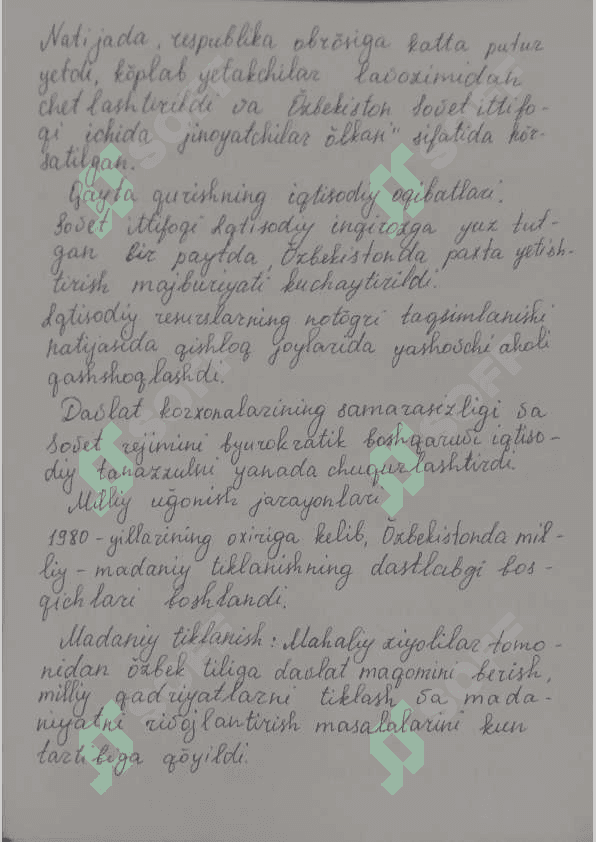 Natijada, respublika obrōsiga katta putur
yetdi, kōplab yetakchilar lavozimidan
chetlashtirildi va Ōzbekiston Sovet ittifo-
qi ichida "jinoyatchilar ōlkasi" sifatida kōr-
satilgan.
Qayta qurishning iqtisodiy oqibatlari.
Sovet ittifoqi Iqtisodiy inqirozga yuz tut-
gan bir paytda, Ōzbekistonda paxta yetish-
tirish majburiyati kuchaytirildi.
Iqtisodiy resurslarning notōgri taqsimlanishi
natijasida qishloq joylarida yashovchi aholi
qashshoqlashdi.
Davlat korxonalarining samarasizligi va
Sovet rejimini byurokratik boshqaruvi iqtiso-
diy tanazzulni yanada chuqurlashtirdi.
Milliy uģonish jarayonlari
1980-yillarining oxiriga kelib, Ōzbekistonda mil-
liy-madaniy tiklanishning dastlabgi bos-
qichlari boshlandi.
Madaniy tiklanish: Mahaliy ziyolilar tomo-
nidan ōzbek tiliga davlat maqomini berish,
milliy qadriyatlarni tiklash va mada-
niyatni rivojlantirish masalalarini kun
tartibiga qōyildi.
SOFF
SOFF
SOFF
SOFF
SOFF
SOFF